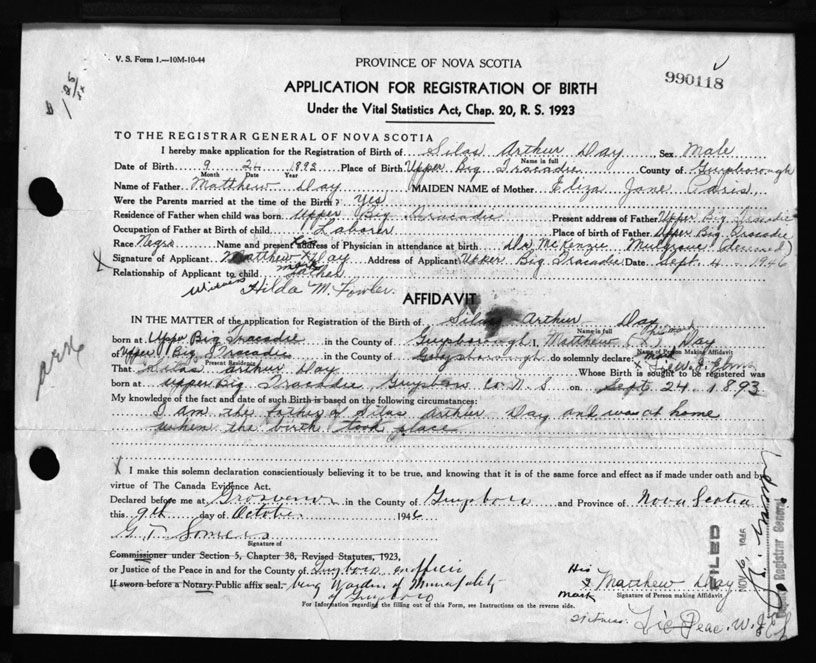 V. S. Form 1.—10M-10-44
PROVINCE OF NOVA SCOTIA
990118
APPLICATION FOR REGISTRATION OF BIRTH
Under the Vital Statistics Act, Chap. 20, R. S. 1923
TO THE REGISTRAR GENERAL OF NOVA SCOTIA
I hereby make application for the Registration of Birth of Silas Arthur Day Sex Male
Name in full
Date of Birth 9 24 1893 Place of Birth Upper Big Tracadie County of Guysborough
Month Date Year
Name of Father Matthew Day MAIDEN NAME of Mother Eliza Jane Paris
Were the Parents married at the time of the Birth? Yes
Residence of Father when child was born Upper Big Tracadie Present address of Father Upper Big Tracadie
Occupation of Father at Birth of child Laborer Place of birth of Father Upper Big Tracadie
Race Negro Name and present address of Physician in attendance at birth Dr McKenzie Mulgrave (deceased)
his
X Signature of Applicant Matthew X Day Address of Applicant Upper Big Tracadie Date Sept. 4 1946
mark
Relationship of Applicant to child father
witness Hilda M. Fowler
AFFIDAVIT
IN THE MATTER of the application for Registration of the Birth of Silas Arthur Day
Name in full
born at Upper Big Tracadie in the County of Guysborough I, Matthew (X) Day
of Upper Big Tracadie in the County of Guysborough do solemnly declare:
Present Residence
Name of Person Making Affidavit
That Silas Arthur Day Whose Birth is sought to be registered was
born at Upper Big Tracadie Guysboro Co. N. S on Sept. 24 1893
My knowledge of the fact and date of such Birth is based on the following circumstances:
I am the father of Silas Arthur Day and was at home
when the birth took place
X I make this solemn declaration conscientiously believing it to be true, and knowing that it is of the same force and effect as if made under oath and by
virtue of The Canada Evidence Act.
Declared before me at Grosvenor in the County of Guysboro and Province of Nova Scotia
this 9th day of October 1946
G. T. Somers
Signature of
Commissioner under Section 5, Chapter 38, Revised Statutes, 1923,
or Justice of the Peace in and for the County of Guysboro exofficio
If sworn before a Notary Public affix seal. being Warden of Municipality
of Guysboro
His
X Matthew Day
mark
Signature of Person making Affidavit
For Information regarding the filling out of this Form, see Instructions on the reverse side.
Witness:
FILED
NOV 1946
Registrar General